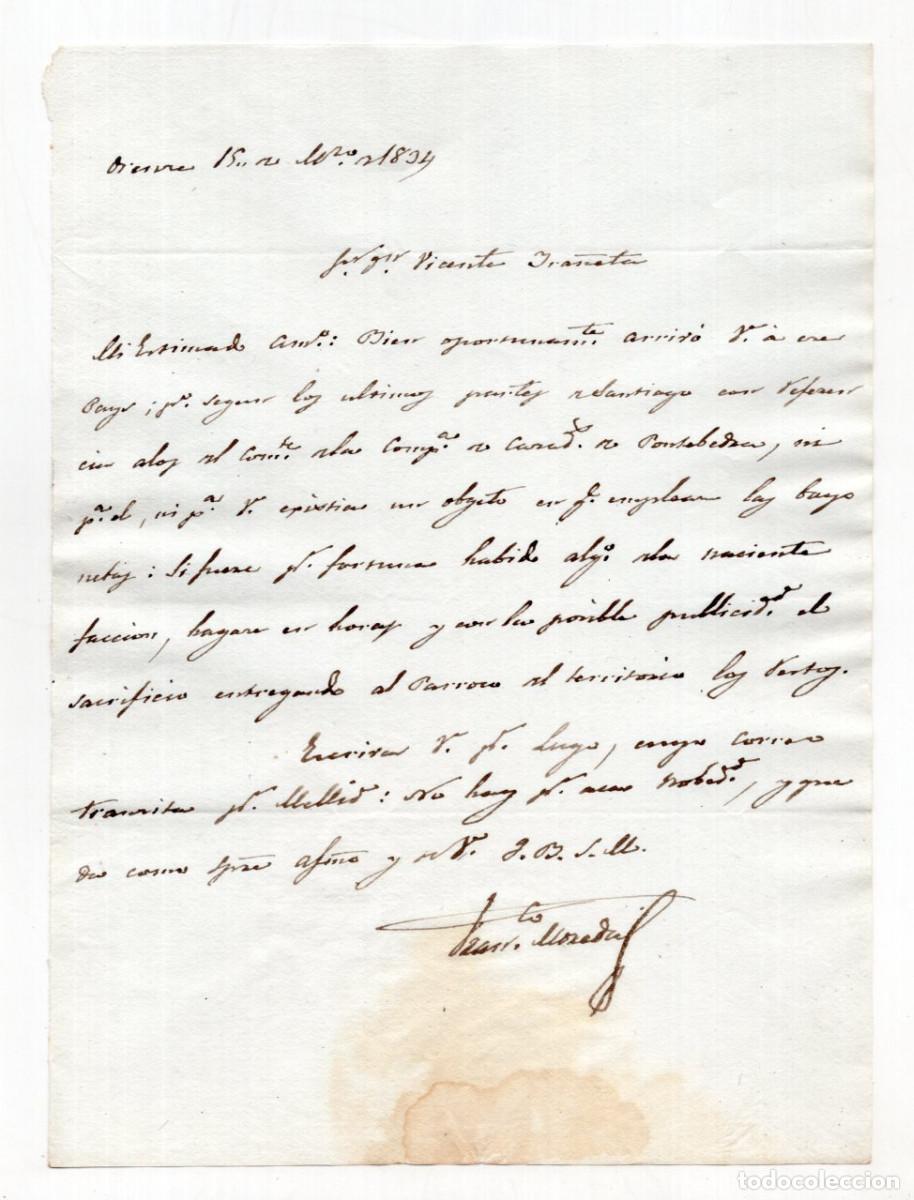 Orense 15,, de Mzo. de 1834
Sor. Dn. Vicente Irañeta
Mi Estimado Amo.: Bien oportunamte. arrivó V. á ese
Pays; pr. segun los ultimos partes de Santiago con referen
cia a los del Comte. de la Compa. de Cazads. de Pontebedra, ni
pa. el, ni pa. V. existia un objeto en qe. emplear las bayo
netas: Si fuere pr. fortuna habido algo. de la naciente
faccion, hagase en horas y con la posible publicidd. el
sacrificio entregando al Parroco del territorio los restos.
Escriva V. pr. Lugo, cuyo correo
transita pr. Mellid: No hay pr. aca nobedd., y que
da como spre afmo y de V. Q. B. S. M.
Franco. Moreda
todocoleccion